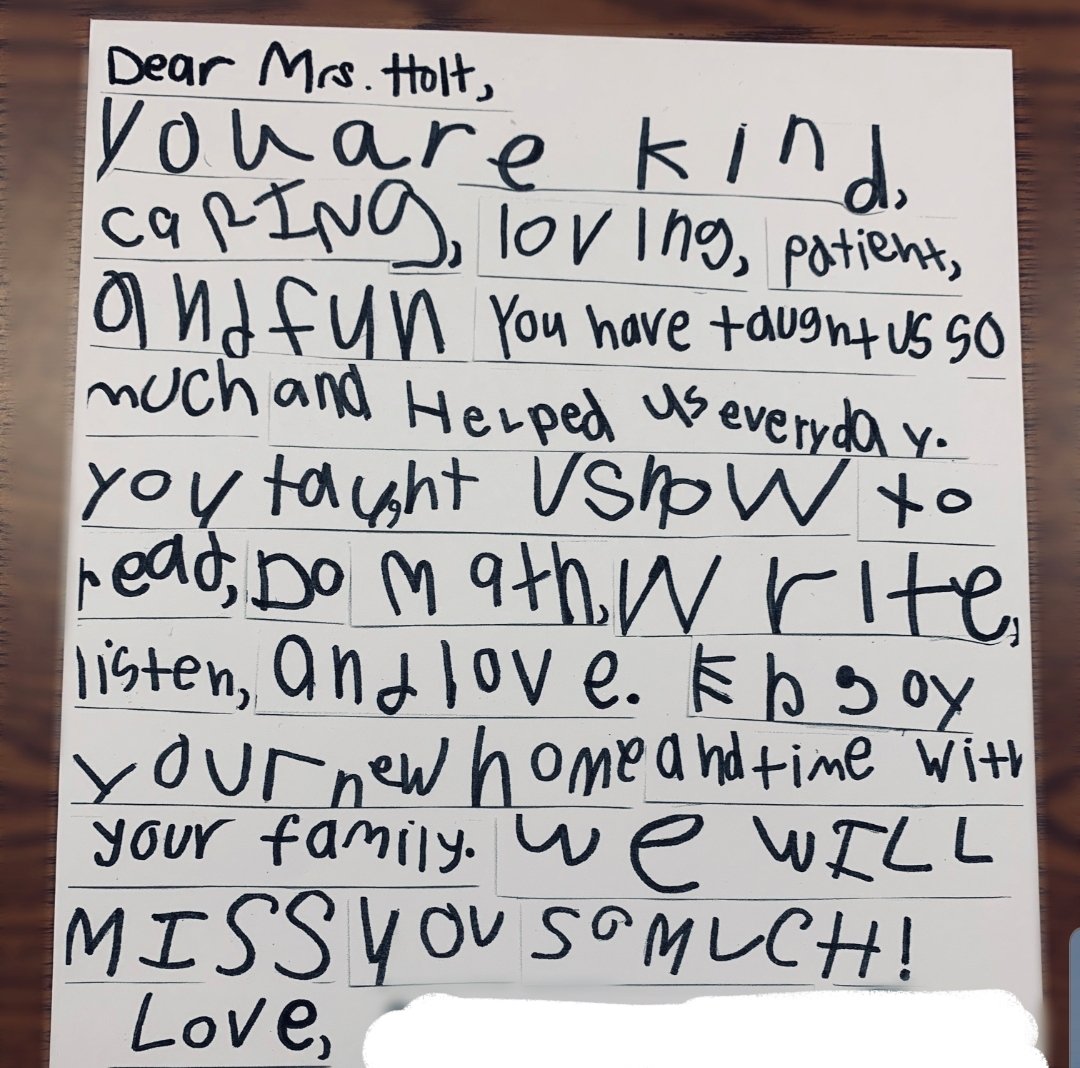 Dear Mrs. Holt,
you are kind,
caRING, loving, patient,
and fun You have taught us so
much and Helped us everyday.
you taught UshoW to
read, Do math, Write,
listen, and love. Enjoy
your new home and time with
your family. we wILL
MISS you soMUCH!
Love,